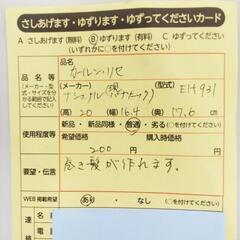 さしあげます・ゆずります・ゆずってくださいカード
A さしあげます（無料） B ゆずります（有料） C ゆずってください
（いずれかに○を付けてください）
品名等
（メーカー・型式・サイズを分かる範囲で記入してください）
カールン・リセ
（メーカー） （型式）
ナショナル（現パナソニック） EH931
（高） 20 （幅） 16.4 （奥行） 17.6 cm
使用程度等
新品・新品同様・普通・劣る（○を付けてください）
希望価格 購入時価格
200 円 円
要望・伝言
巻き髪が作れます。
WEB掲載希望
あり ・ なし （○を付けてください）
連絡